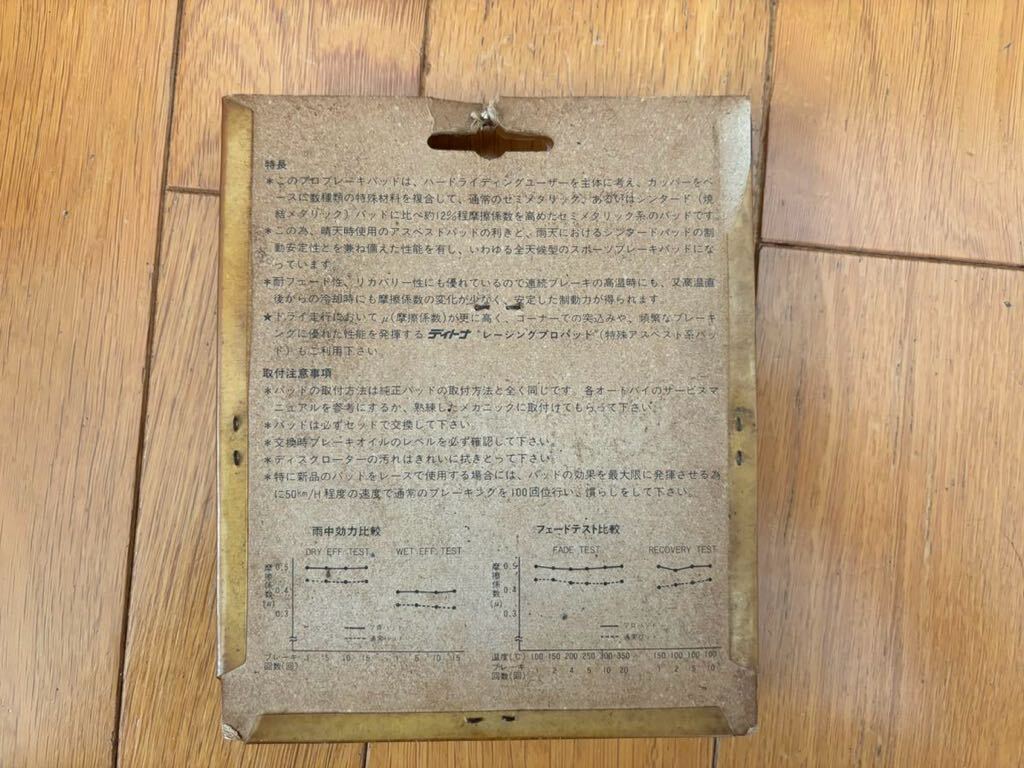 特長
＊このプロブレーキパッドは、ハードライディングユーザーを主体に考え、カッパーをベ
ースに数種類の特殊材料を複合して、通常のセミメタリック、あるいはシンタード（焼
結メタリック）パッドに比べ約12%程摩擦係数を高めたセミメタリック系のパッドです。
＊この為、晴天時使用のアスベストパッドの利きと、雨天におけるシンタードパッドの制
動安定性とを兼ね備えた性能を有し、いわゆる全天候型のスポーツブレーキパッドにな
っています。
＊耐フェード性、リカバリー性にも優れているので連続ブレーキの高温時にも、又高温直
後からの冷却時にも摩擦係数の変化が少なく、安定した制動力が得られます。
★ドライ走行においてμ(摩擦係数)が更に高く、コーナーでの突込みや、頻繁なブレーキ
ングに優れた性能を発揮する デイトナ "レーシングプロパッド"(特殊アスベスト系パッ
ド)もご利用下さい。
取付注意事項
＊パッドの取付方法は純正パッドの取付方法と全く同じです。各オートバイのサービスマ
ニュアルを参考にするか、熟練したメカニックに取付けてもらって下さい。
＊パッドは必ずセットで交換して下さい。
＊交換時ブレーキオイルのレベルを必ず確認して下さい。
＊ディスクローターの汚れはきれいに拭きとって下さい。
＊特に新品のパッドをレースで使用する場合には、パッドの効果を最大限に発揮させる為
に50km/H程度の速度で通常のブレーキングを100回位行い、慣らしをして下さい。
雨中効力比較
DRY EFF TEST WET EFF TEST
摩擦係数(μ)
0.5
0.4
0.3
プロパッド
通常パッド
ブレーキ回数(回) 1 5 10 15 1 5 10 15
フェードテスト比較
FADE TEST RECOVERY TEST
摩擦係数(μ)
0.5
0.4
0.3
プロパッド
通常パッド
温度(℃) 100 150 200 250 300 350 150 100 100 100
ブレーキ回数(回) 1 2 4 5 10 20 1 2 5 10